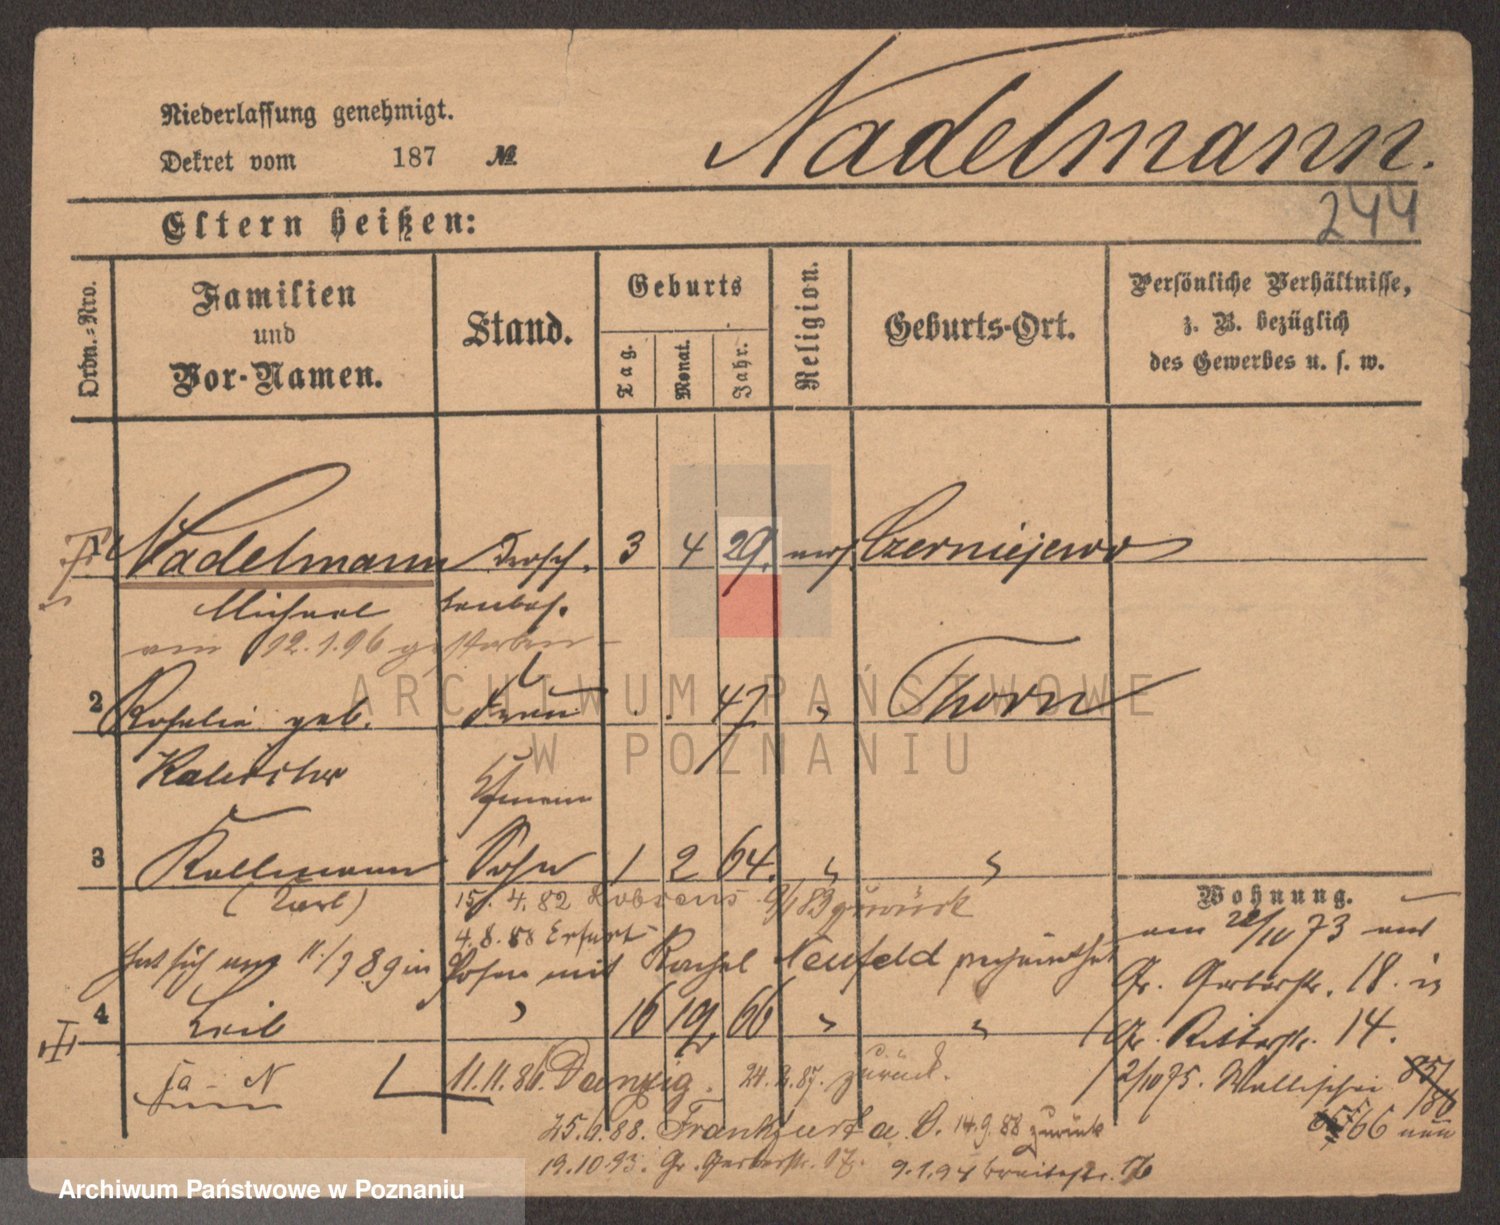 Niederlassung genehmigt.
Dekret vom 187 №
Nadelmann.
244
Eltern heißen:
Ordn.=Nro.
Familien und Vor-Namen.
Stand.
Geburts
Tag. Monat. Jahr.
Religion.
Geburts-Ort.
Persönliche Verhältnisse, z. B. bezüglich des Gewerbes u. s. w.
Nadelmann 3 4 29. mos. Czerniejewo
Michael
am 12.1.96 gestorben
2 Rosalie geb. Frau 47 " Thorn
3 Kallmann Sohn 1 2 64. " "
(Karl) 15. 4. 82 9/1 83 zurück
4. 8. 88 Erfurt
hat sich am 11/7 89 in Posen mit Rachel Neufeld verheirathet
4 Leib " 16 12 66 " "
11.11.86. Danzig. 24. 2. 87. zurück.
25.6.88. Frankfurt a. O. 14.9.88 zurück
19.10.93. Gr. Gerberstr. 17. 9.1.94 Breitestr. 16
Wohnung.
am 22/10 73 aus
Gr. Gerberstr. 18. in
Gr. Ritterstr. 14.
2/10 75. Wallischei 85/86
66 neu
ARCHIWUM PAŃSTWOWE
W POZNANIU
Archiwum Państwowe w Poznaniu